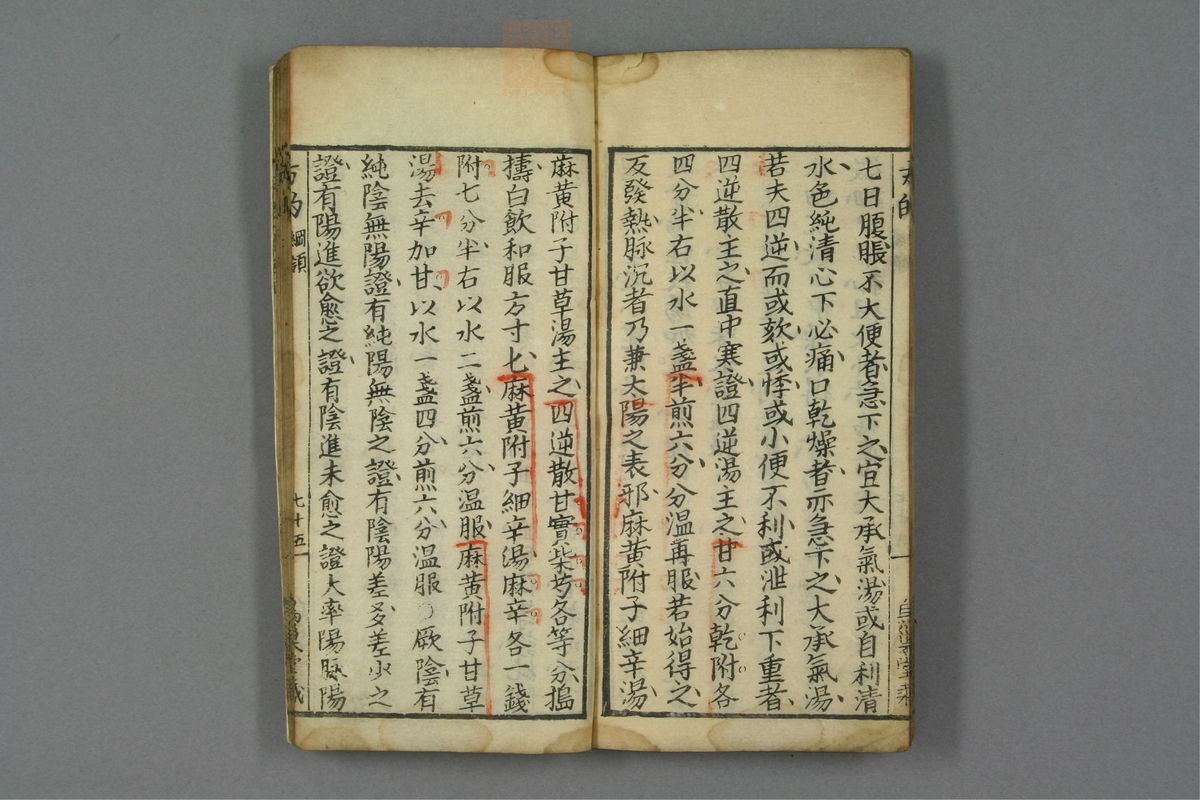 七日腹脹不大便者急下之宜大承氣湯或自利清
水色純清心下必痛口乾燥者亦急下之大承氣湯
若夫四逆而或欬或悸或小便不利或泄利下重者
四逆散主之直中寒證四逆湯主之甘六分乾附各
四分半右以水一盞半煎六分分温再服若始得之
反發熱脉沉者乃兼太陽之表邪麻黄附子細辛湯
麻黄附子甘草湯主之四逆散甘實柴芍各等分搗
擣白飲和服方寸匕麻黄附子細辛湯麻辛各一錢
附七分半右以水二盞煎六分温服麻黄附子甘草
湯去辛加甘以水一盞四分煎六分温服○厥陰有
純陰無陽證有純陽無陰之證有陰陽差多差少之
證有陽進欲愈之證有陰進未愈之證大率陽脉陽
方的
綱領
七十五